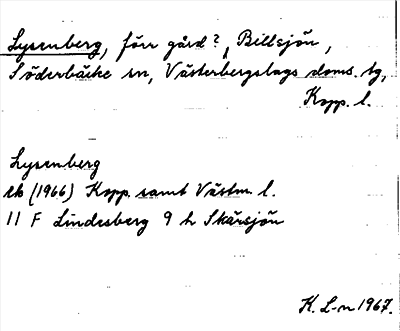 Lysenberg, förr gård?, Billsjön,
Söderbärke sn, Västerbergslags doms. tg,
Kopp. l.
Lysenberg
rb (1966) Kopp. samt Västm. l.
11 F Lindesberg 9 h Skärsjön
K. L-n 1967.